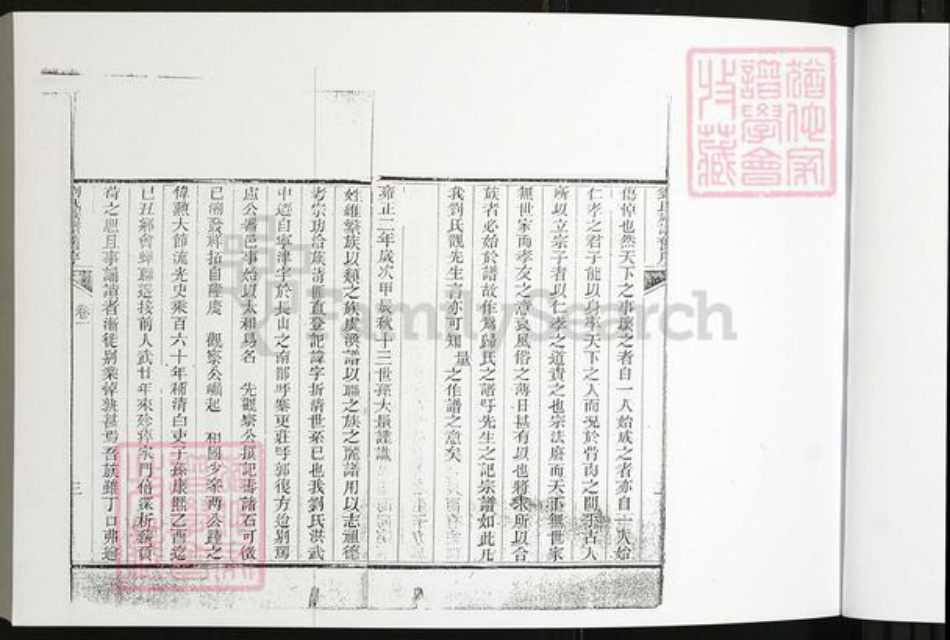 傷悼也然天下之事壞之者自一人始成之者亦自一人始
仁孝之君子能以身率天下之人而況於骨肉之間乎古人
所以立宗子者以仁孝之道責之也宗法廢而天下無世家
無世家而孝友之意衰風俗之薄日甚有以也將來所以合
族者必始於譜故作為歸氏之譜吁先生之記宗譜如此凡
我劉氏觀先生言亦可知量之作譜之意矣
雍正二年歲次甲辰秋十三世孫大量謹識
姓維繫族以類之族虞渙譜以聯之族之麗譜用以志祖德
考宗功洽族誼匪直登記諱字折清世系已也我劉氏洪武
中遷自寧津宇於長山之南鄙呼寨更莊呼郭復方迨別駕
盧公署邑事始以太和易名 先觀察公撰記壽諸石可徵
已開發祥拓自隆慶 觀察公崛起 相國少宰兩公踵之
偉勳大節流光史乘百六十年稱清白吏子孫康熙乙酉迄
已丑鄉會蟬聯遙接前人武廿年來殄瘁家門
荷之思且事誦讀者漸徙別業悼孰甚焉吾族雖丁口弗逾
卷一
三
譜學會
收藏
FamilySearch